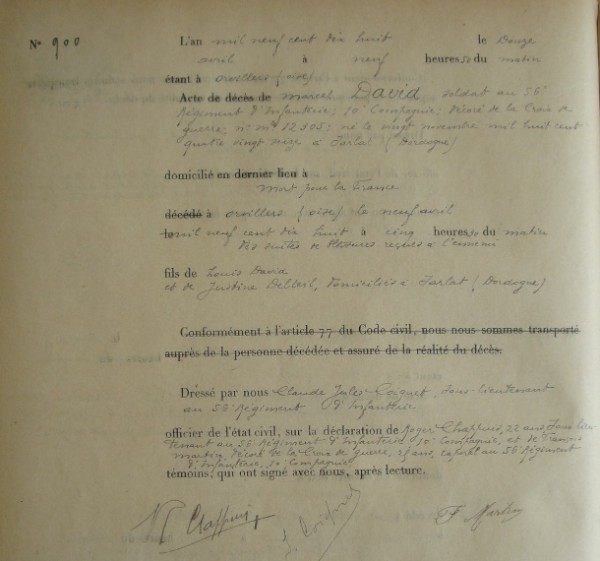 N° 900
L'an mil neuf cent dix huit le Douze
avril à neuf heures 30 du matin
étant à orvillers (oise)
Acte de décès de marcel David soldat au 56e
Régiment d'Infanterie; 10e Compagnie; décoré de la Croix de
Guerre; n° mle 12305; né le vingt novembre mil huit cent
quatre vingt seize à Sarlat (Dordogne)
domicilié en dernier lieu à
mort pour la France
décédé à orvillers (oise) le neuf avril
le mil neuf cent dix huit à cinq heures 30 du matin
des suites de blessures reçues à l'ennemi
fils de Louis David
et de Justine Delteil, domiciliés à Sarlat (Dordogne)
Conformément à l'article 77 du Code civil, nous nous sommes transporté
auprès de la personne décédée et assuré de la réalité du décès.
Dressé par nous Claude Jules Coignet Sous-lieutenant
au 56e Régiment d'Infanterie
officier de l'état civil, sur la déclaration de Roger Chappuis, 22 ans, Sous lieu-
tenant au 56e Régiment d'Infanterie 10e Compagnie, et de François
martin, décoré de la Croix de guerre, ans, caporal au 56e Régiment
d'Infanterie, 10e Compagnie
témoins; qui ont signé avec nous, après lecture.
R Chappuis J. Coignet F Martin